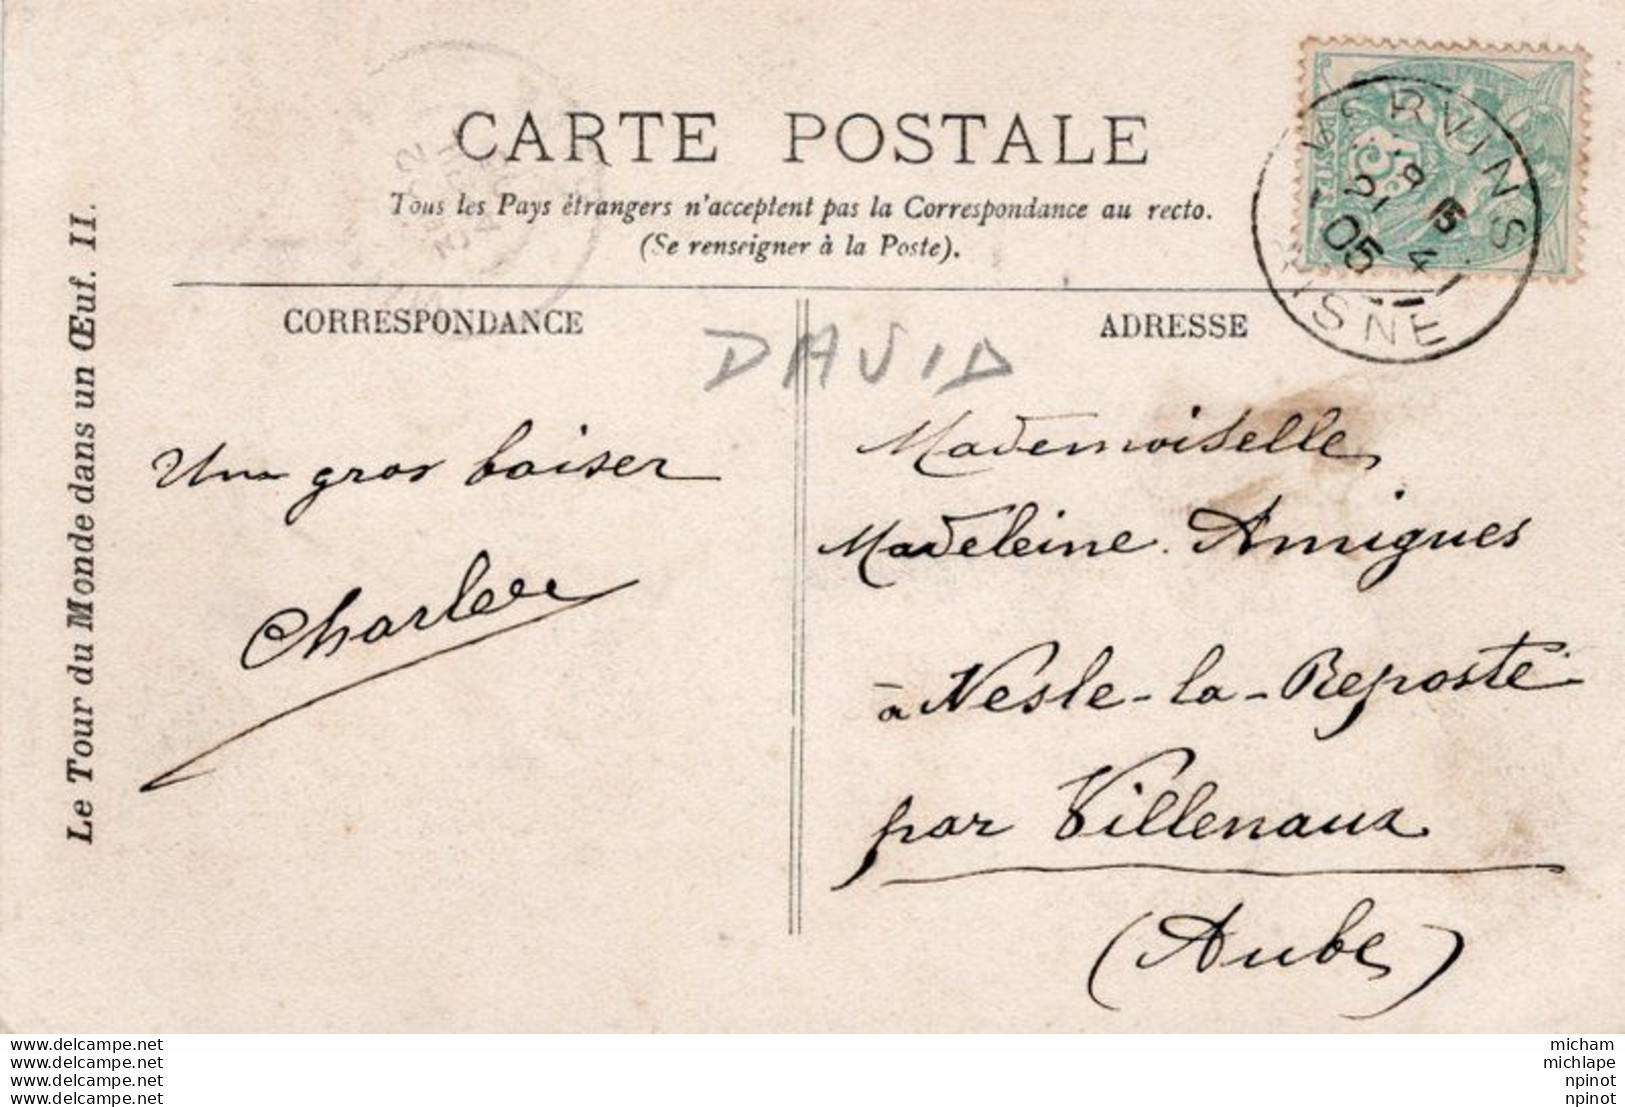 CARTE POSTALE
Tous les Pays étrangers n'acceptent pas la Correspondance au recto.
(Se renseigner à la Poste).
VERVINS
AISNE
05
Le Tour du Monde dans un Œuf. II.
CORRESPONDANCE
ADRESSE
DAVID
Un gros baiser
Charles
Mademoiselle
Madeleine Amigues
à Nesle-la-Reposte
par Villenauxe
(Aube)
www.delcampe.net
www.delcampe.net
www.delcampe.net
www.delcampe.net
micham
michlape
npinot
npinot